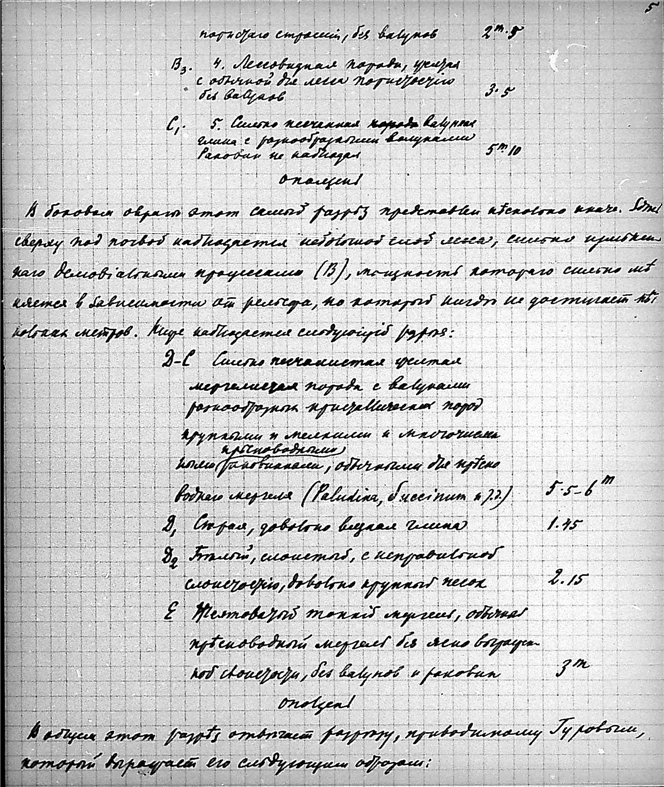 5
пористаго строенія, без валунов 2 m. 5
B3. 4. Лессовидная порода, желтая
с обычной для лесса пористостію
без валунов 3.5
C1. 5. Сильно песчанная валунная
глина с разнообразными валунами
Раковин не наблюдал 5 m 10
оползень
В боковом овраге этот самый разрѣз представлен нѣсколько иначе.
сверху под почвой наблюдается небольшой слой лесса, сильно измѣнен
наго делювіальными процессами (B), мощность котораго сильно мѣ
няется в зависимости от рельефа, но который нигдѣ не достигает нѣс
кольких метров. Ниже наблюдается слѣдующій разрѣз:
D-C Сильно песчанистая желтая
мергелистая порода с валунами
разнообразных кристаллических пород
крупными и мелкими и многочислен
прѣсноводными
ными раковинами, обычными для прѣсно
воднаго мергеля (Paludina, Succinum и др.) 5.5-6 m
D1 Сѣрая, довольно вязкая глина 1.45
D2 Бѣлый, слоистый, с неправильной
слоистостію, довольно крупный песок 2.15
E Желтоватый тонкій мергель, обычный
прѣсноводный мергель без ясно выражен
ной слоистости, без валунов и раковин 3 m
оползень
В общем этот разрѣз отвѣчает разрѣзу, приводимому Гуровым,
который выражает его слѣдующим образом: